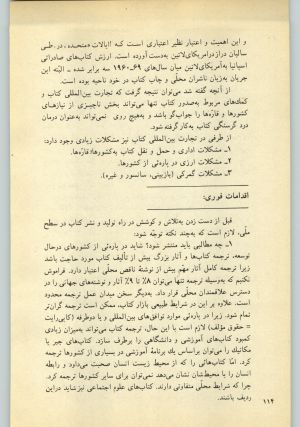 و این اهمیت و اعتبار نظیر اعتباری است کـه «ایالات متحده» در طـی
سالیان دراز در امریکای‌لاتین به‌دست آورده است. ارزش کتاب‌های صادراتی
اسپانیا به‌آمریکای‌لاتین میان سال‌های ۶۹ـ۱۹۶۰ سه برابر شده ـ البته این
جریان به‌زیان ناشران محلی و چاپ کتاب در خود ناحیه بوده است.
از آنچه گفته شد می‌توان نتیجه گرفت که تجارت بین‌المللی کتاب و
کمک‌های مربوط به‌صدور کتاب تنها می‌تواند بخش ناچیزی از نیازهـای
کشورها و قاره‌ها را جواب‌گو باشد و به‌هیچ روی نمی‌تواند به‌عنوان درمان
درد گرسنگی کتاب به‌کار گرفته شود.
از طرفی در تجارت بین‌المللی کتاب نیز مشکلات زیادی وجود دارد:
۱ـ مشکلات اداری و حمل و نقل کتاب به‌کشورها/ قاره‌ها.
۲ـ مشکلات ارزی در پاره‌ئی از کشورها.
۳ـ مشکلات گمرکی (بازبینی، سانسور و غیره).
اقدامات فوری:
قبل از دست زدن به‌تلاش و کوشش در راه تولید و نشر کتاب در سطح
ملی، لازم است که به‌چند نکته توجّه شود:
۱ـ چه مطالبی باید منتشر شود؟ شاید در پاره‌ئی از کشورهای درحال
توسعه، ترجمه کتاب‌ها و آثار بزرگ بیش از تألیف کتاب مورد حاجت باشد
زیرا ترجمه کامل آثار مهّم بیش از نوشتهٔ ناقص محلّی اعتبار دارد. فراموش
نکنیم که به‌وسیله ترجمه تنها می‌توان ۸٪ تا ۹٪ آثار و نوشته‌های جهانی را در
دسترس علاقمندان محلّی قرار داد. به‌دیگر سخن میدان عمل ترجمه محدود
است. علاوه بر این در شرایط طبیعی بازار کتاب، ممکن است ترجمه گران‌تر
تمام شود. زیرا در پاره‌ئی موارد توافق‌های بین‌المللی و یا دوطرفه (کاپی‌رایت
= حقوق مؤلف) لازم است با این حال، ترجمه کتاب می‌تواند به‌میزان زیادی
کمبود کتاب‌های آموزشی و دانشگاهی را برطرف سازد. کتاب‌های جبر یا
مکانیک را می‌توان براساس یك برنامهٔ آموزشی در بسیاری از کشورها ترجمه
کرد. امّا کتاب‌هائی را که از محیط زیست انسان صحبت می‌دارد و رابطه
انسان را با محیط‌شان نشان می‌دهد نمی‌توان برای سایر کشورها ترجمه کرد.
چرا که شرایط محلّی متفاوتی دارند. کتاب‌های علوم اجتماعی نیز شاید در این
ردیف باشند.
۱۱۴